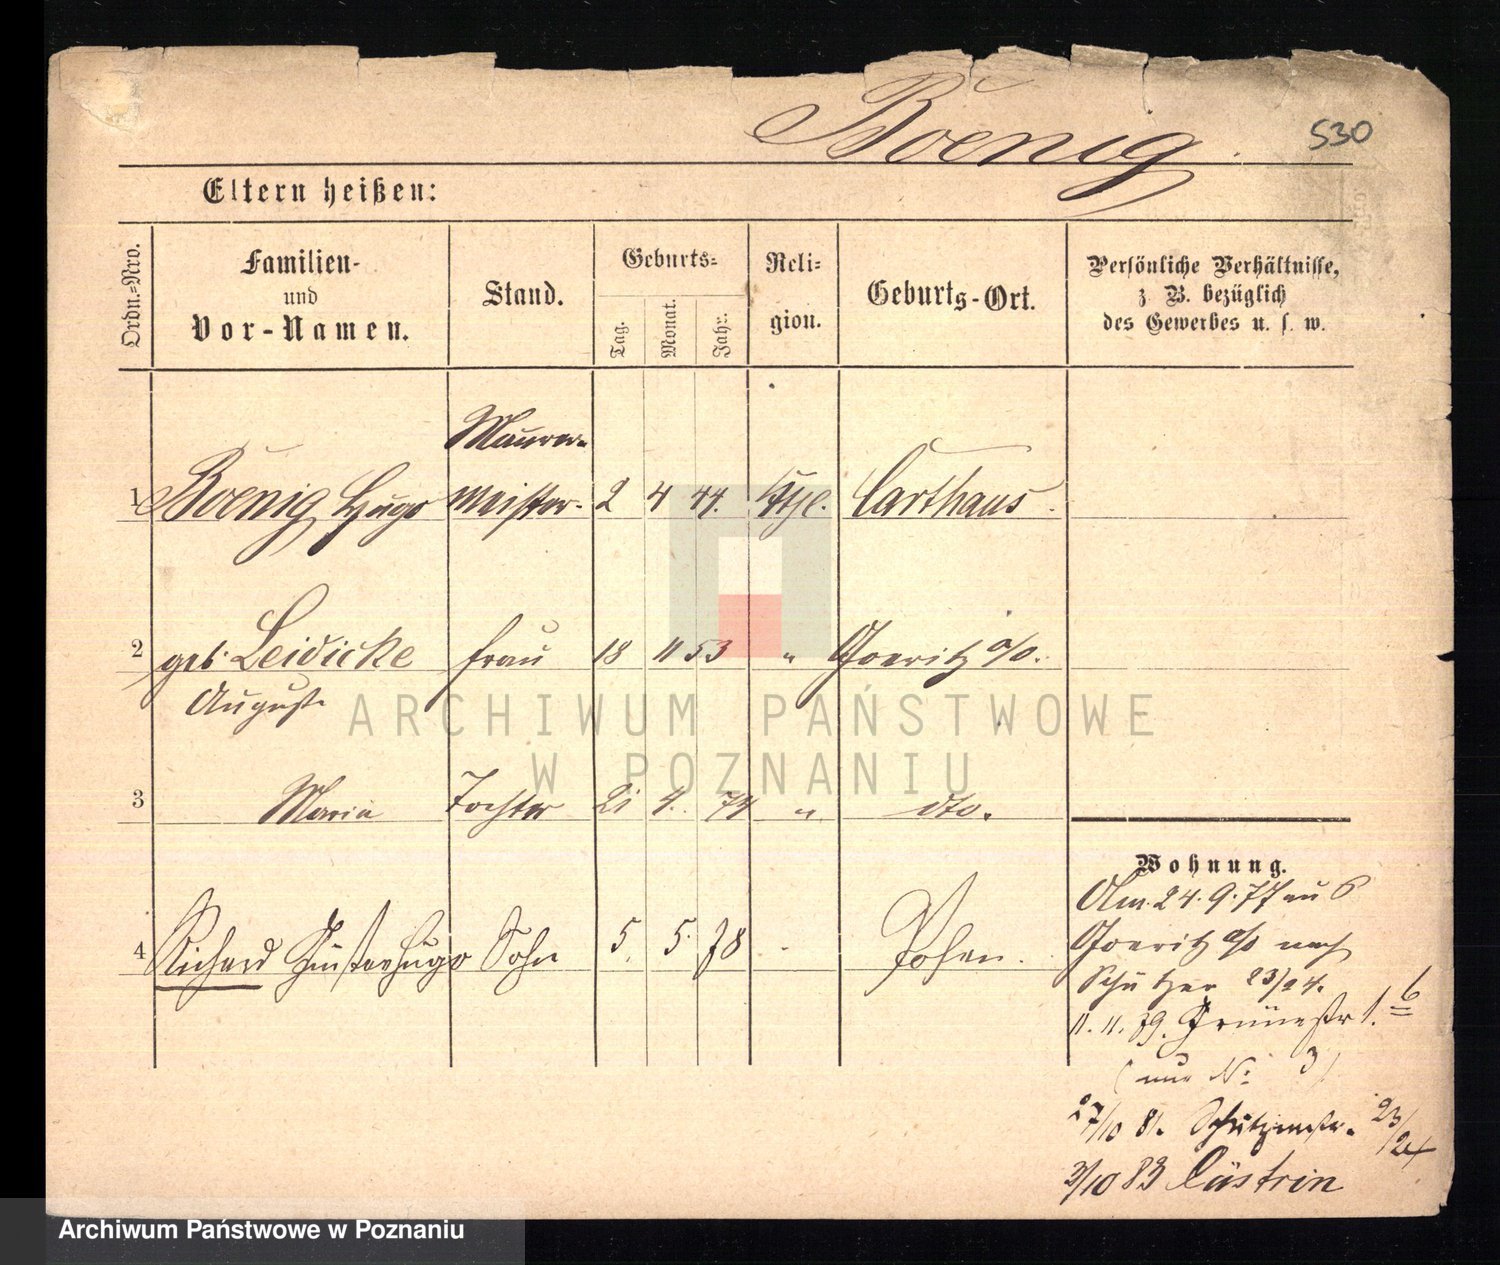 Boenig.
530
Eltern heißen:
Ordn.-Nro.
Familien-
und
Vor-Namen.
Stand.
Geburts-
Tag.
Monat.
Jahr.
Reli-
gion.
Geburts-Ort.
Persönliche Verhältnisse,
z. B. bezüglich
des Gewerbes u. s. w.
Maurer-
1 Boenig Hugo meister. 2 4 44. Kthl. Carthaus.
2 geb. Leidicke frau 18 11 53 " Goeritz a/o.
Auguste
3 Maria Tochter 21 4. 74 " dto.
4 Richard Gustav Hugo Sohn 5. 5. 78 - Posen.
Wohnung.
24.9.77 6
Goeritz a/o nach
Schützen 23/24.
11.11.79. Grünestr 1. 6
( No 3)
27/10 81. Schützenstr. 23/24
3/10 83 Cüstrin
ARCHIWUM PAŃSTWOWE
W POZNANIU
Archiwum Państwowe w Poznaniu